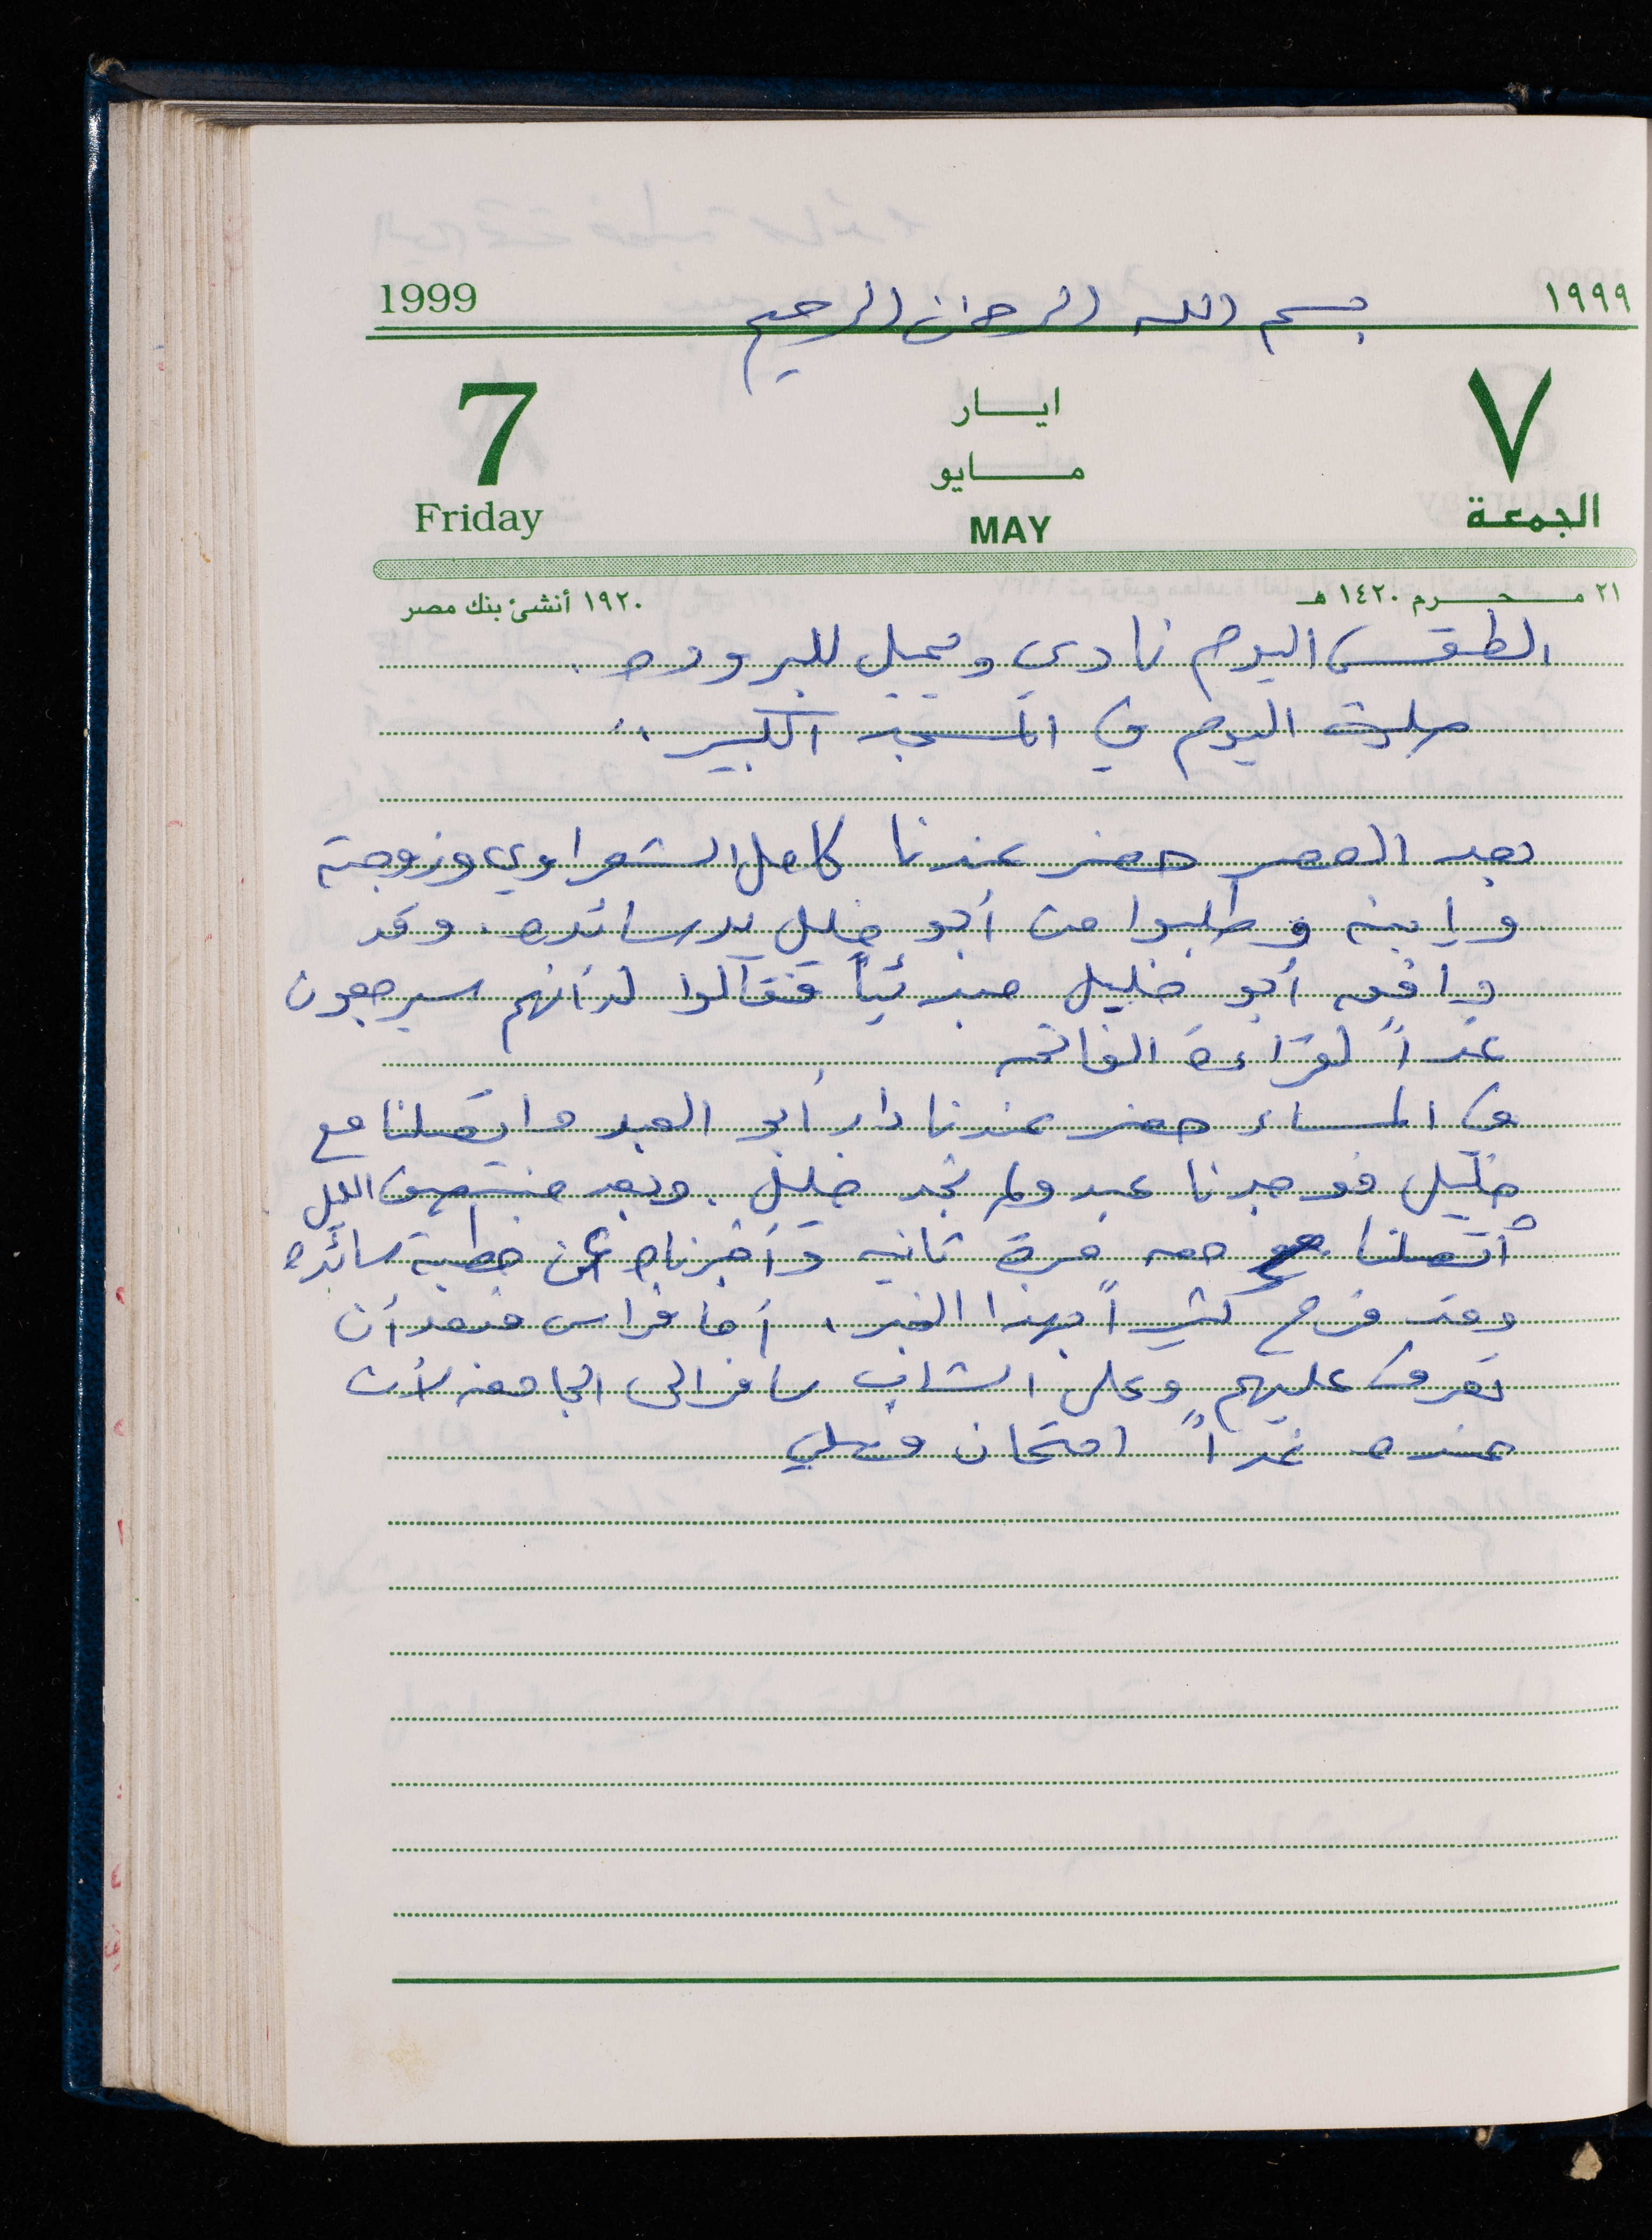 1999 بسم الله الرحمن الرحيم ١٩٩٩
7 ايــار ٧
مــايو
Friday MAY الجمعة
١٩٢٠ أنشئ بنك مصر ٢١ محرم ١٤٢٠ هـ
الطقس اليوم نادي ويميل للبروده .
صليت اليوم في المسجد الكبير .
بعد العصر حضر عندنا كامل الشعراوي وزوجته
وابنه وطلبوا من أبو خليل يد سائده . وقد
وافقه أبو خليل مبدئياً فقالوا له أنهم سيرجعون
غداً لقراءة الفاتحه
في المساء حضر عندنا دار أبو العبد واتصلنا مع
خليل فوجدنا عبد ولم نجد خليل . وبعد منتصف الليل
أتصلنا معه مرة ثانيه وأخبرناه عن خطبة سائده
وقد فرح كثيراً بهذا الخبر . أما فراس فبعد أن
تعرف عليهم وعلى الشاب سافر الى الجامعه لأن
عنده غداً امتحان عملي